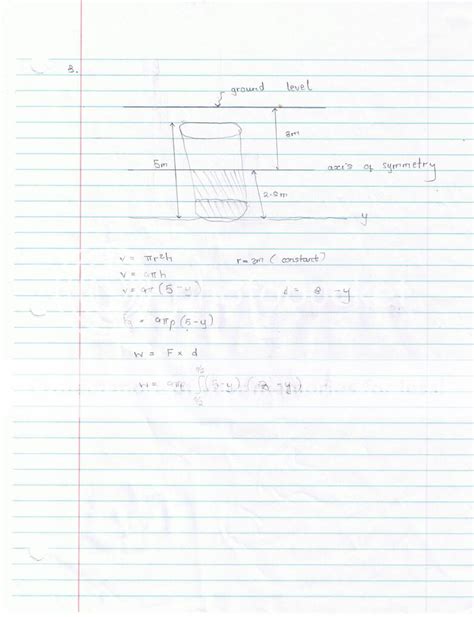 3.
ground level
3m
5m
axis of symmetry
2.5m
y
v = πr²h r = 3m (constant)
v = 9πh
v = 9π (5-y) d = 8 - y
= 9πρ (5-y)
W = F × d
W = 9πρ ∫ (5-y) (8 - y)